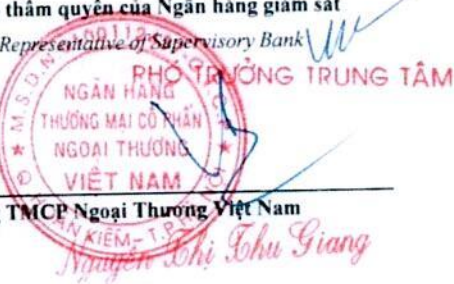 thẩm quyền của Ngân hàng giám sát
Representative of Supervisory Bank
PHÓ TRƯỞNG TRUNG TÂM
NGÂN HÀNG
THƯƠNG MẠI CỔ PHẦN
NGOẠI THƯƠNG
VIỆT NAM
TMCP Ngoại Thương Việt Nam
Nguyễn Thị Thu Giang